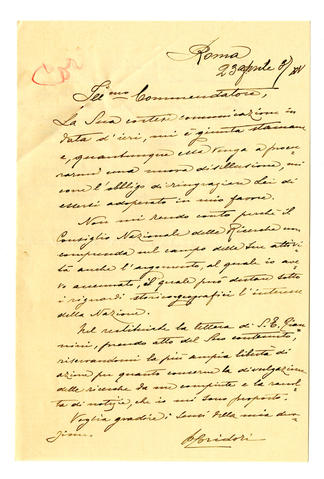 Roma
23 aprile
Cori
Ill.mo Commendatore,
La Sua cortese comunicazione in
data d'ieri, mi è giunta stamane
e, quantunque essa venga a procu-
rarmi una nuova disillusione, mi
corre l'obbligo di ringraziare Lei di
essersi adoperato in mio favore.
Non mi rendo conto perchè il
Consiglio Nazionale delle Ricerche non
comprenda nel campo delle sue attivi-
tà anche l'argomento, al quale io ave-
vo accennato, il quale può destare sotto
i riguardi storico-geografici l'interesse
della Nazione.
Nel restituirle la lettera di S.E. Gian-
nini, prendo atto del Suo contenuto,
riservandomi la più ampia libertà di
azione per quanto concerne la divulgazione
delle ricerche da me compiute e la raccol-
ta di notizie, che io mi sono proposto.
Voglia gradire i sensi della mia devo-